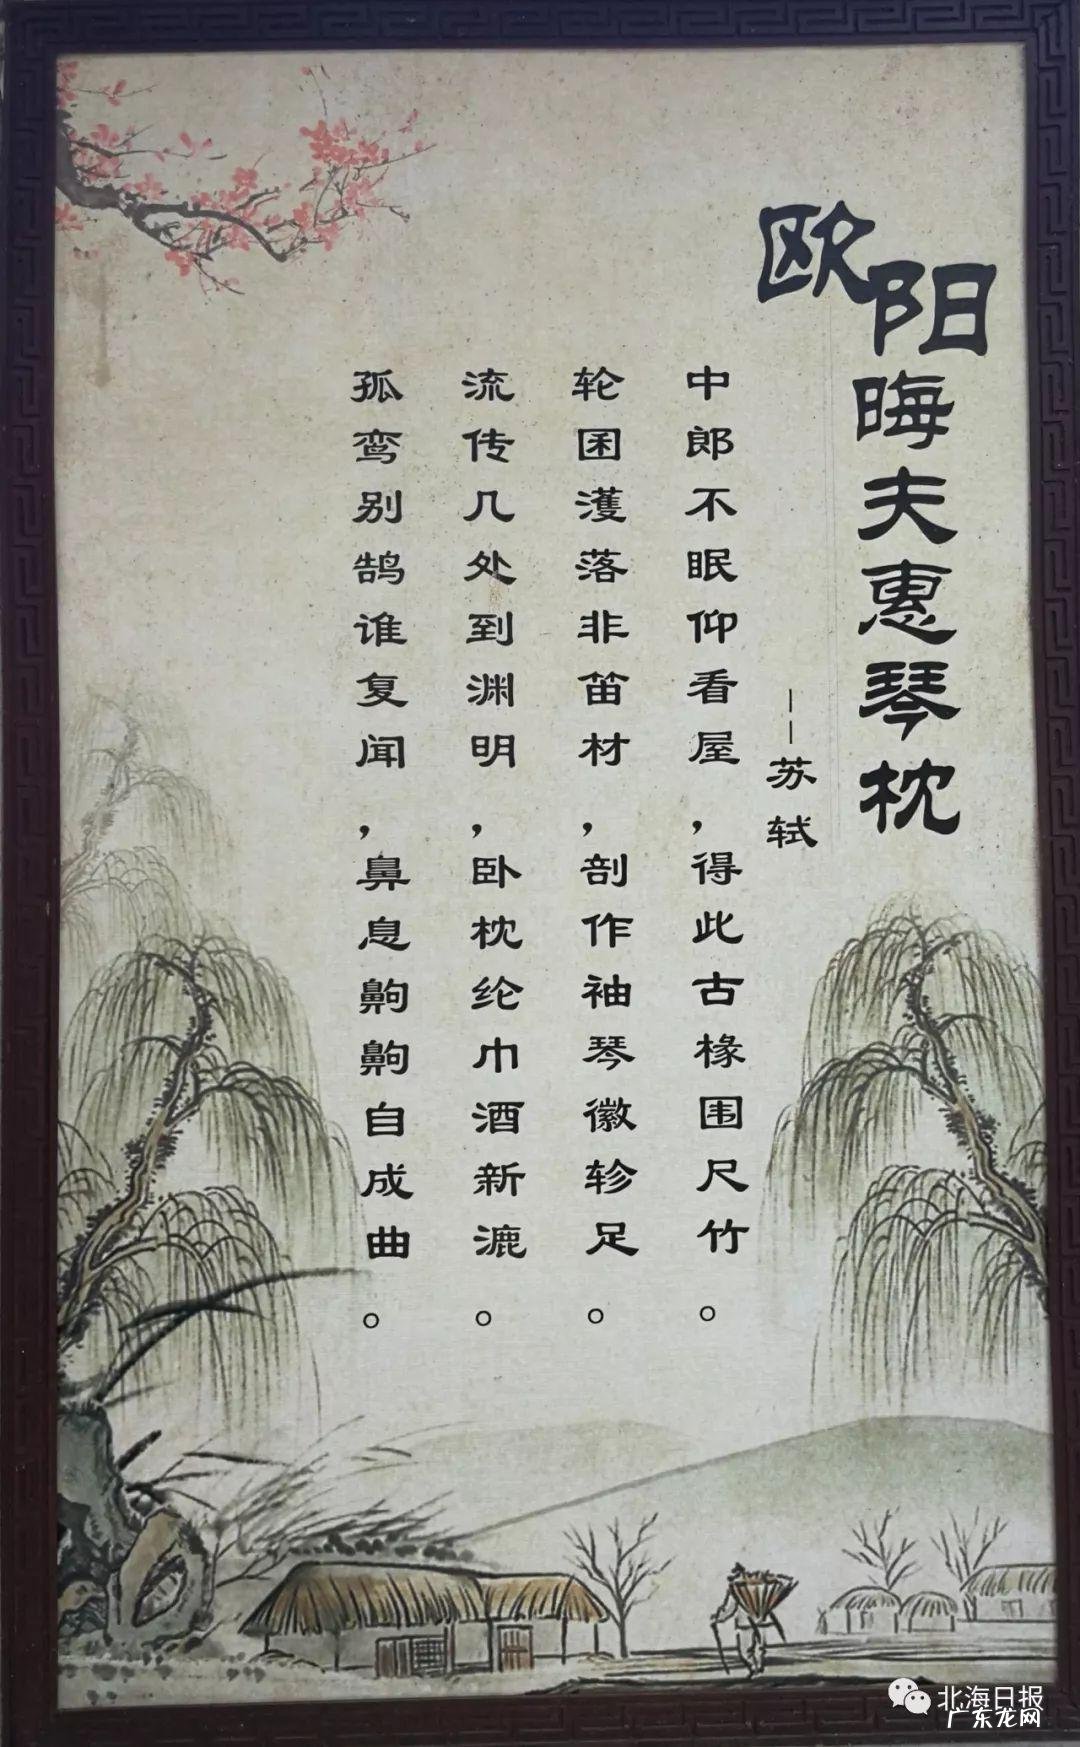 欧阳晦夫惠琴枕
——苏轼
中郎不眠仰看屋，得此古椽围尺竹。
轮囷濩落非笛材，剖作袖琴徽轸足。
流传几处到渊明，卧枕纶巾酒新漉。
孤鸾别鹄谁复闻，鼻息齁齁自成曲。
北海日报
广东龙网